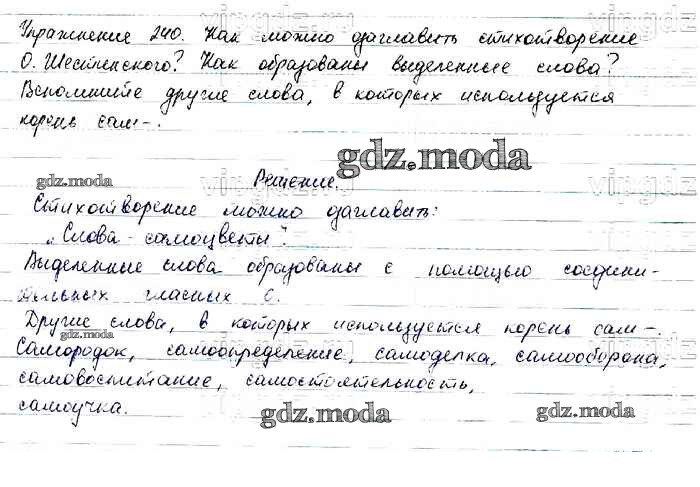 Упражнение 240. Как можно озаглавить стихотворение
О. Шестинского? Как образованы выделенные слова?
Вспомните другие слова, в которых используется
корень сам-.
gdz.moda
Решение.
gdz.moda
Стихотворение можно озаглавить:
„Слова-самоцветы".
Выделенные слова образованы с помощью соедини-
тельных гласных е.
Другие слова, в которых используется корень сам-.
gdz.moda
Самородок, самоопределение, самоделка, самооборона,
самовоспитание, самостоятельность,
самоучка.
gdz.moda
gdz.moda